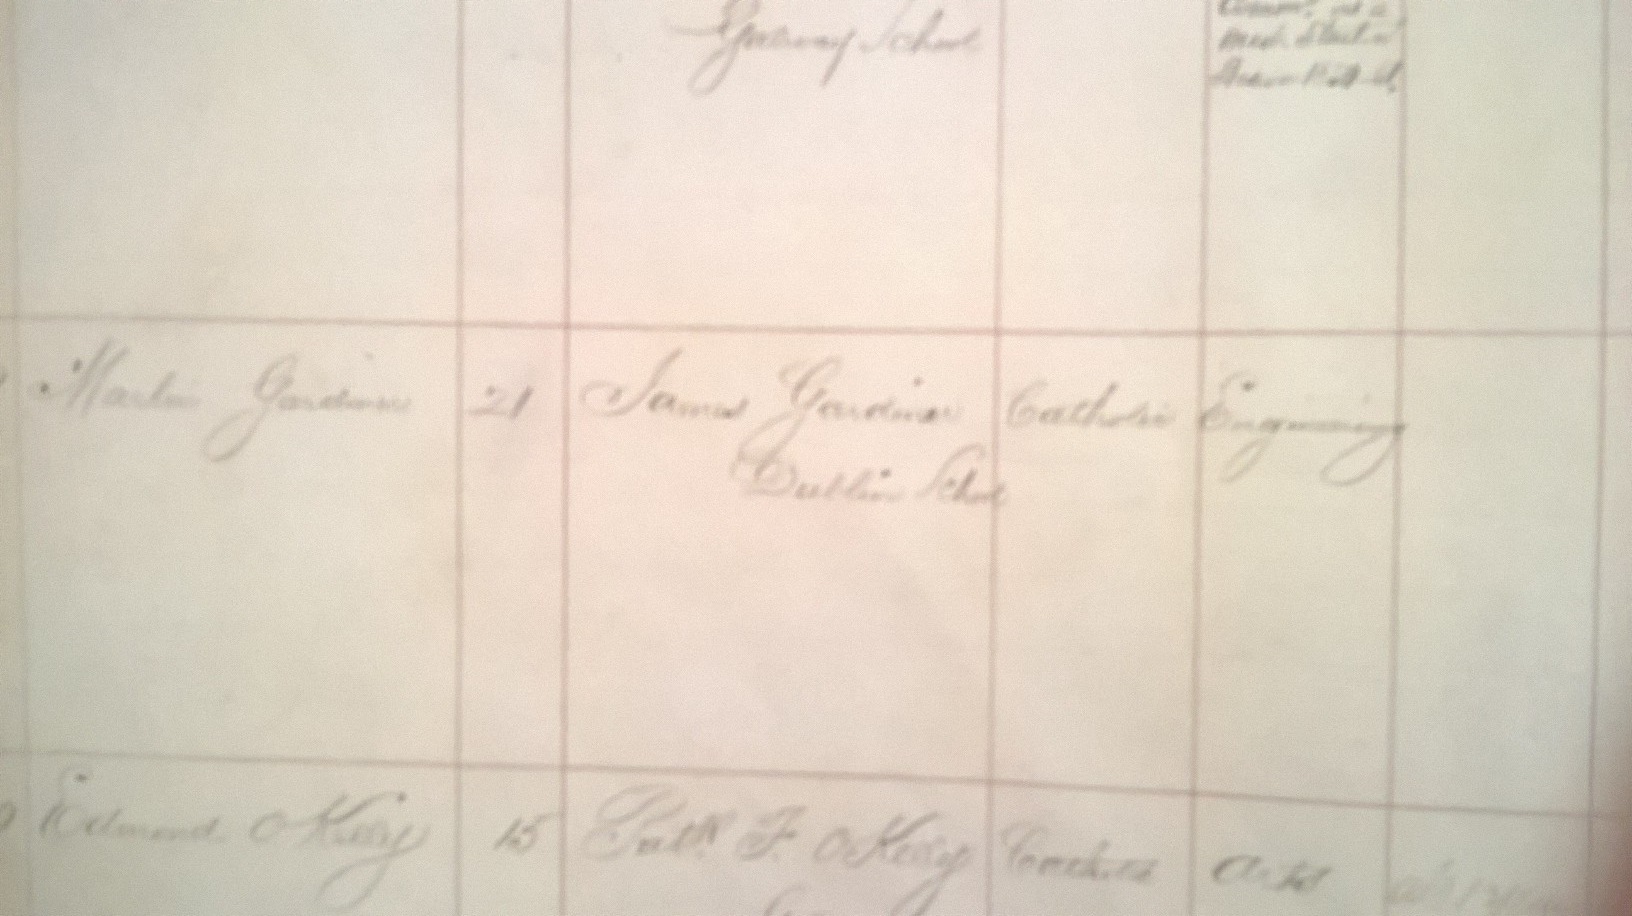 Galway School
Martin Gardiner 21 James Gardiner Catholic Engineering
Dublin School
Edmond O'Kelly 15 Patk F. O'Kelly Catholic Arts